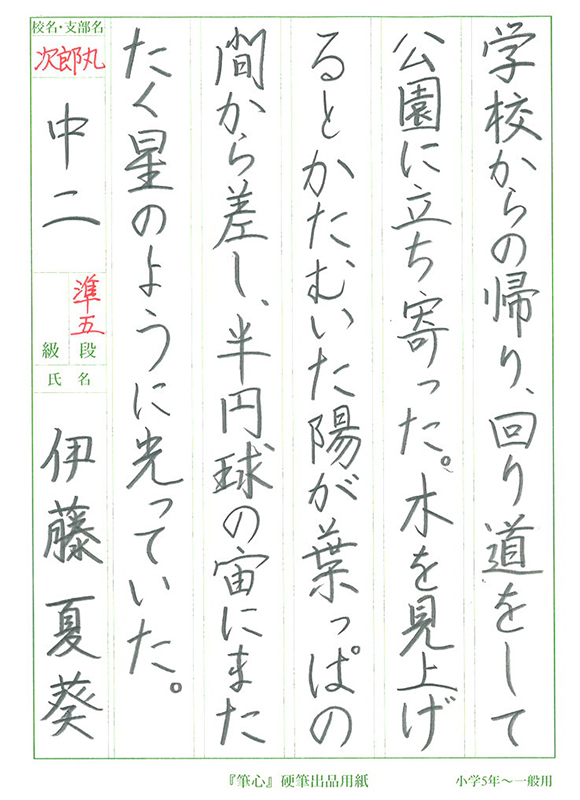 学校からの帰り、回り道をして
公園に立ち寄った。木を見上げ
るとかたむいた陽が葉っぱの
間から差し、半円球の宙にまた
たく星のように光っていた。
校名・支部名
次郎丸
中二
準五
段
級
氏名
伊藤夏葵
『筆心』硬筆出品用紙
小学5年～一般用